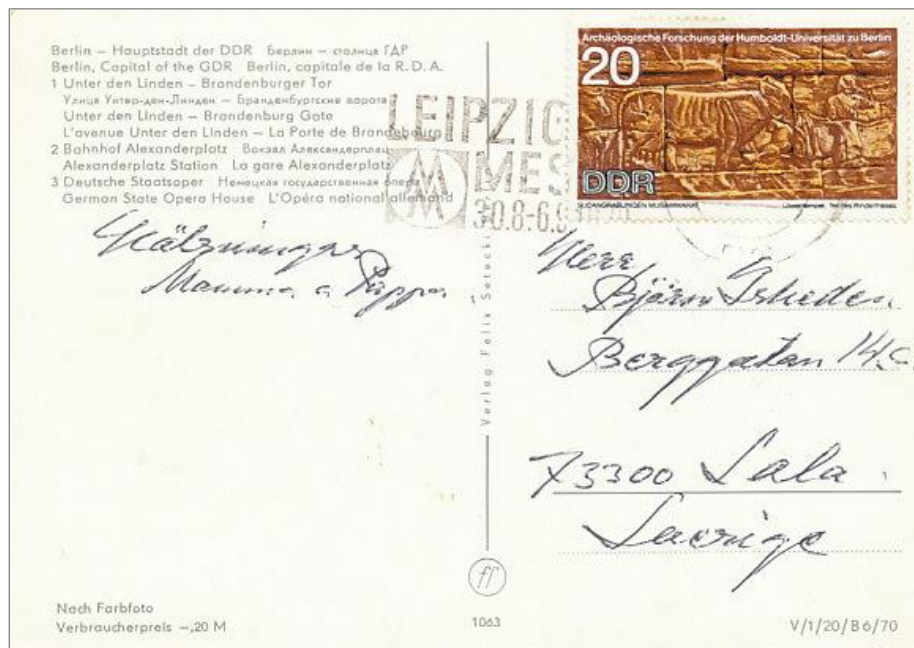 Berlin – Hauptstadt der DDR Берлин – столица ГДР
Berlin, Capital of the GDR Berlin, capitale de la R.D.A.
1 Unter den Linden – Brandenburger Tor
Улица Унтер-ден-Линден – Бранденбургские ворота
Unter den Linden – Brandenburg Gate
L'avenue Unter den Linden – La Porte de Brandebourg
2 Bahnhof Alexanderplatz Вокзал Александерплац
Alexanderplatz Station La gare Alexanderplatz
3 Deutsche Staatsoper Немецкая государственная опера
German State Opera House L'Opéra national allemand
LEIPZIG
MES
30.8-6.9
Archäologische Forschung der Humboldt-Universität zu Berlin
20
DDR
Hälsningar
Mamma o Pappa
Verlag Felix Setecki
Herr
Björn
Berggatan 14 C
73300 Sala
Sverige
ff
Nach Farbfoto
Verbraucherpreis –,20 M
1063
V/1/20/B6/70